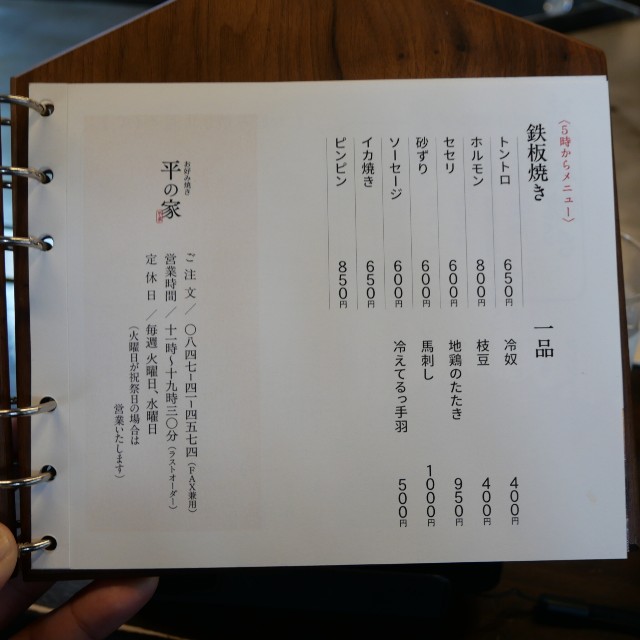 (5時からメニュー)
鉄板焼き
トントロ 650円
ホルモン 800円
セセリ 600円
砂ずり 600円
ソーセージ 600円
イカ焼き 650円
ピンピン 850円
一品
冷奴 400円
枝豆 400円
地鶏のたたき 950円
馬刺し 1000円
冷えてるっ手羽 500円
お好み焼き
平の家
ご注文/〇八四七-四一-四五七四(FAX兼用)
営業時間/十一時〜十九時三〇分(ラストオーダー)
定休日/毎週 火曜日、水曜日
(火曜日が祝祭日の場合は
営業いたします)